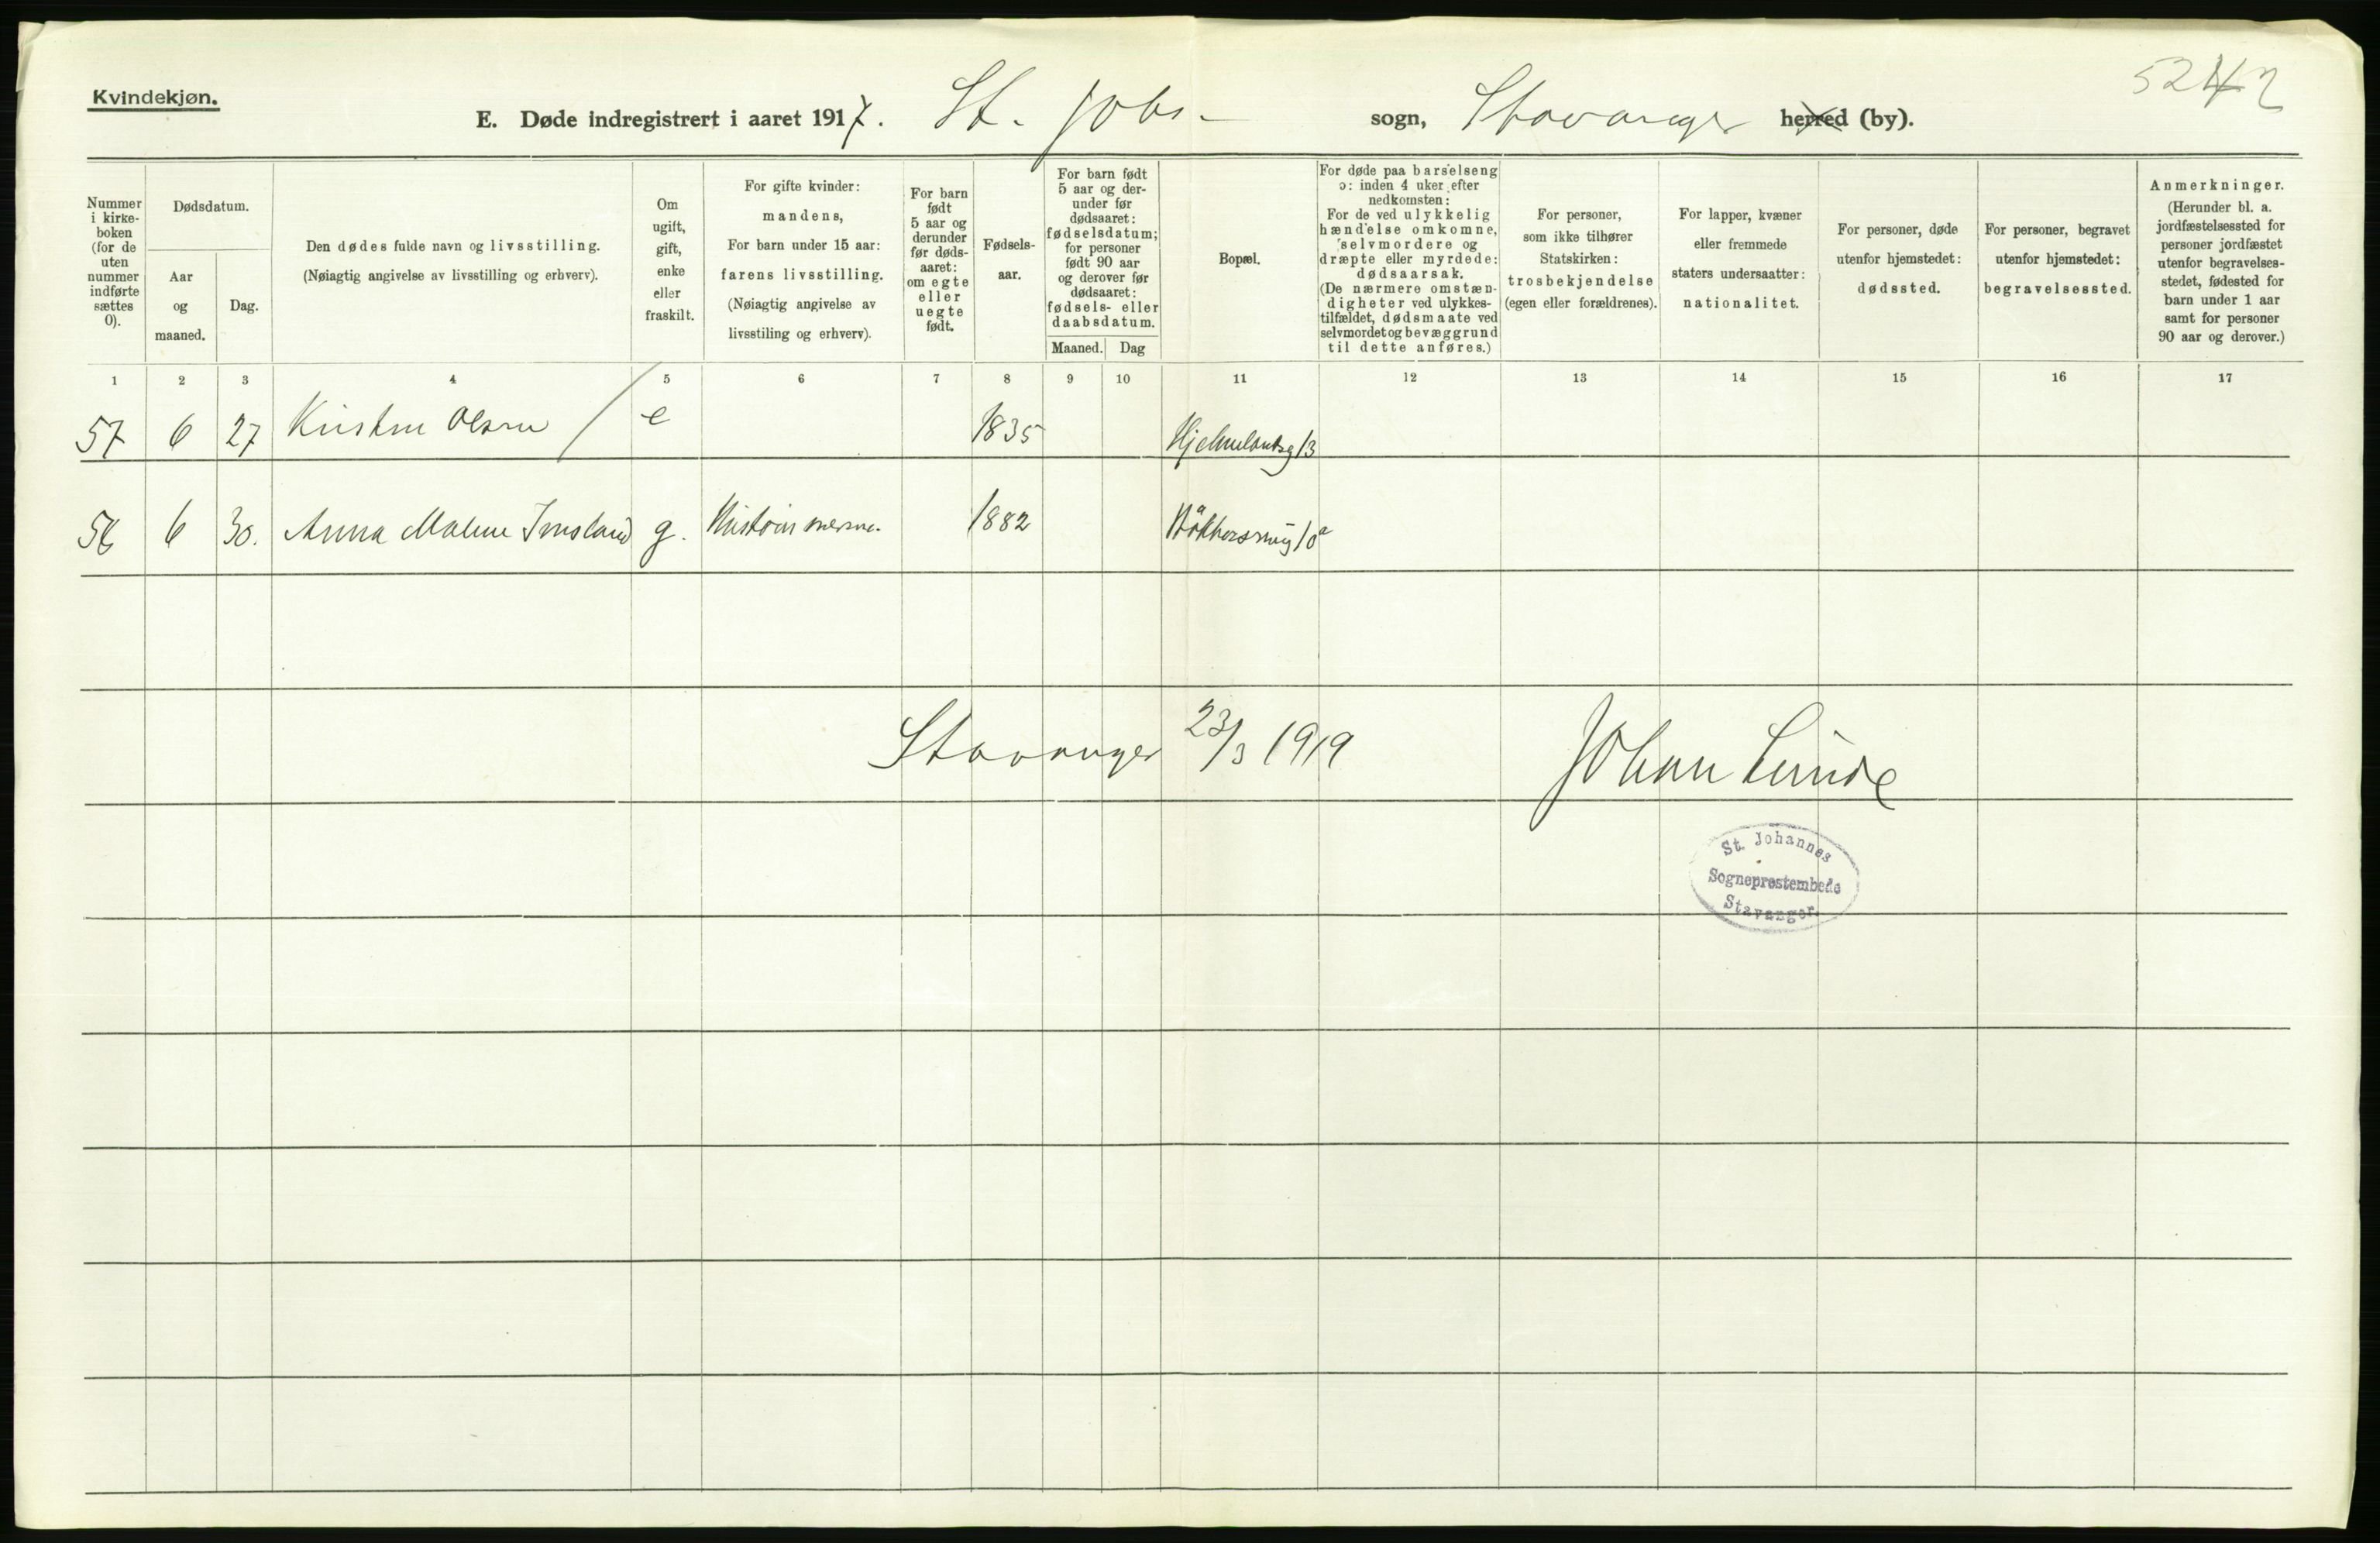 Kvindekjøn.
524
E. Døde indregistrert i aaret 1917. St. Johs. sogn, Stavanger herred (by).
Nummer i kirke-boken (for de uten nummer indførte sættes 0).
Dødsdatum.
Aar og maaned.
Dag.
Den dødes fulde navn og livsstilling.
(Nøiagtig angivelse av livsstilling og erhverv).
Om ugift, gift, enke eller fraskilt.
For gifte kvinder: mandens,
For barn under 15 aar: farens livsstilling.
(Nøiagtig angivelse av livsstiling og erhverv).
For barn født 5 aar og derunder før døds-aaret: om egte eller uegte født.
Fødsels-aar.
For barn født 5 aar og der-under før dødsaaret: fødselsdatum; for personer født 90 aar og derover før dødsaaret: fødsels- eller daabsdatum.
Maaned.
Dag
Bopæl.
For døde paa barselseng ɔ: inden 4 uker efter nedkomsten:
For de ved ulykkelig hændelse omkomne, selvmordere og dræpte eller myrdede: dødsaarsak.
(De nærmere omstæn-digheter ved ulykkes-tilfældet, dødsmaate ved selvmordet og bevæggrund til dette anføres.)
For personer, som ikke tilhører Statskirken: trosbekjendelse (egen eller forældrenes).
For lapper, kvæner eller fremmede staters undersaatter: nationalitet.
For personer, døde utenfor hjemstedet: dødssted.
For personer, begravet utenfor hjemstedet: begravelsessted.
Anmerkninger.
(Herunder bl. a. jordfæstelsessted for personer jordfæstet utenfor begravelses-stedet, fødested for barn under 1 aar samt for personer 90 aar og derover.)
1 2 3 4 5 6 7 8 9 10 11 12 13 14 15 16 17
57 6 27 Kristine Olsen e 1835 Hjelmelandsg 13
6 30. Anna Malene Imsland g. 1882 10a
Stavanger 23/3 1919 Johan Lunde
St. Johannes
Sogneprestembede
Stavanger.